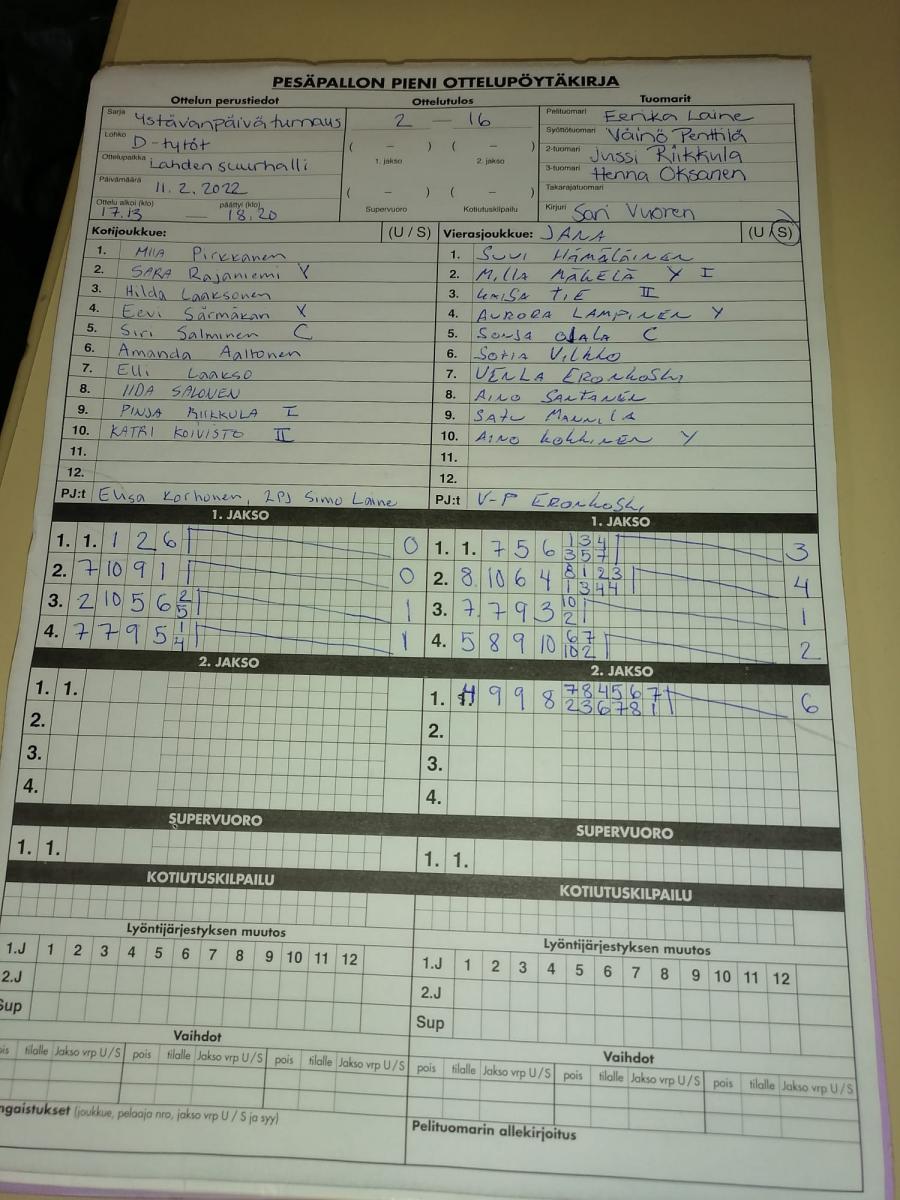 PESÄPALLON PIENI OTTELUPÖYTÄKIRJA
Ottelun perustiedot Ottelutulos Tuomarit
Sarja Ystävänpäiväturnaus 2 — 16 Pelituomari Eerika Laine
Lohko D-tytöt ( – ) ( – ) Syöttötuomari Väinö Penttilä
Ottelupaikka Lahden suurhalli 1. jakso 2. jakso 2-tuomari Jussi Riikkula
Päivämäärä 11.2.2022 ( – ) ( – ) 3-tuomari Henna Oksanen
Ottelu alkoi (klo) päättyi (klo) Takarajatuomari
17.13 — 18.20 Supervuoro Kotiutuskilpailu Kirjuri Sari Vuoren
Kotijoukkue: (U / S) Vierasjoukkue: JANA (U / S)
1. MIIA Pirkkanen 1. SUVI HÄMÄLÄINEN
2. SARA Rajaniemi Y 2. MILLA MÄKELÄ Y I
3. Hilda Laaksonen 3. KAISA TIE II
4. Eevi Särmäkari Y 4. AURORA LAMPINEN Y
5. Siri Salminen C 5. SONJA OJALA C
6. Amanda Aaltonen 6. SOFIA VILKKO
7. Elli Laakso 7. VENLA ERONKOSKI
8. IIDA SALONEN 8. AINO SANTANEN
9. PINJA RIIKKULA I 9. SATU MANNILA
10. KATRI KOIVISTO II 10. AINO KOKKINEN Y
11. 11.
12. 12.
PJ:t Elisa Korhonen, 2PJ Simo Laine PJ:t V-P ERONKOSKI
1. JAKSO 1. JAKSO
1. 1. 1 2 6 0 1. 1. 7 5 6 1 3 4 3
3 5 7
2. 7 10 9 1 0 2. 8. 10 6 4 8 1 2 3 4
1 3 4 4
3. 2 10 5 6 2 1 3. 7. 7 9 3 10 1
5 2
4. 7 7 9 5 1 1 4. 5 8 9 10 6 7 2
4 10 2
2. JAKSO 2. JAKSO
1. 1. 1. 4 9 9 8 7 8 4 5 6 7 6
2 3 6 7 8 1
2. 2.
3. 3.
4. 4.
SUPERVUORO SUPERVUORO
1. 1. 1. 1.
KOTIUTUSKILPAILU KOTIUTUSKILPAILU
Lyöntijärjestyksen muutos Lyöntijärjestyksen muutos
1.J 1 2 3 4 5 6 7 8 9 10 11 12 1.J 1 2 3 4 5 6 7 8 9 10 11 12
2.J 2.J
Sup Sup
Vaihdot Vaihdot
pois tilalle Jakso vrp U/S pois tilalle Jakso vrp U/S pois tilalle Jakso vrp U/S pois tilalle Jakso vrp U/S pois tilalle Jakso vrp U/S pois tilalle Jakso vrp U/S
ngaistukset (joukkue, pelaaja nro, jakso vrp U / S ja syy) Pelituomarin allekirjoitus